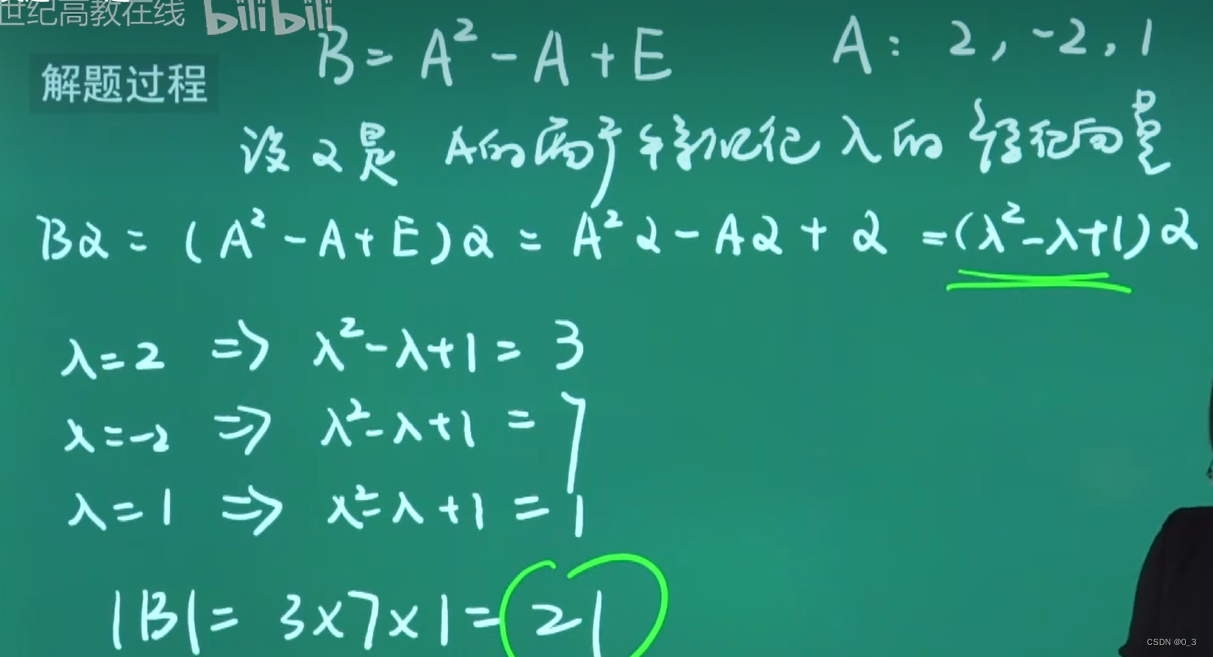 世纪高教在线 bilibili
B = A² - A + E A: 2, -2, 1
解题过程
设 α 是 A的 λ的 向量
Bα = (A² - A + E)α = A²α - Aα + α = (λ² - λ + 1)α
λ = 2 => λ² - λ + 1 = 3
λ = -2 => λ² - λ + 1 = 7
λ = 1 => λ² - λ + 1 = 1
|B| = 3×7×1 = 21
CSDN @0_3